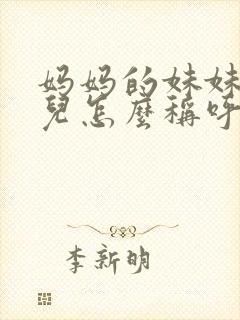 妈妈的妹妹
兒怎麼稱呼
李新明